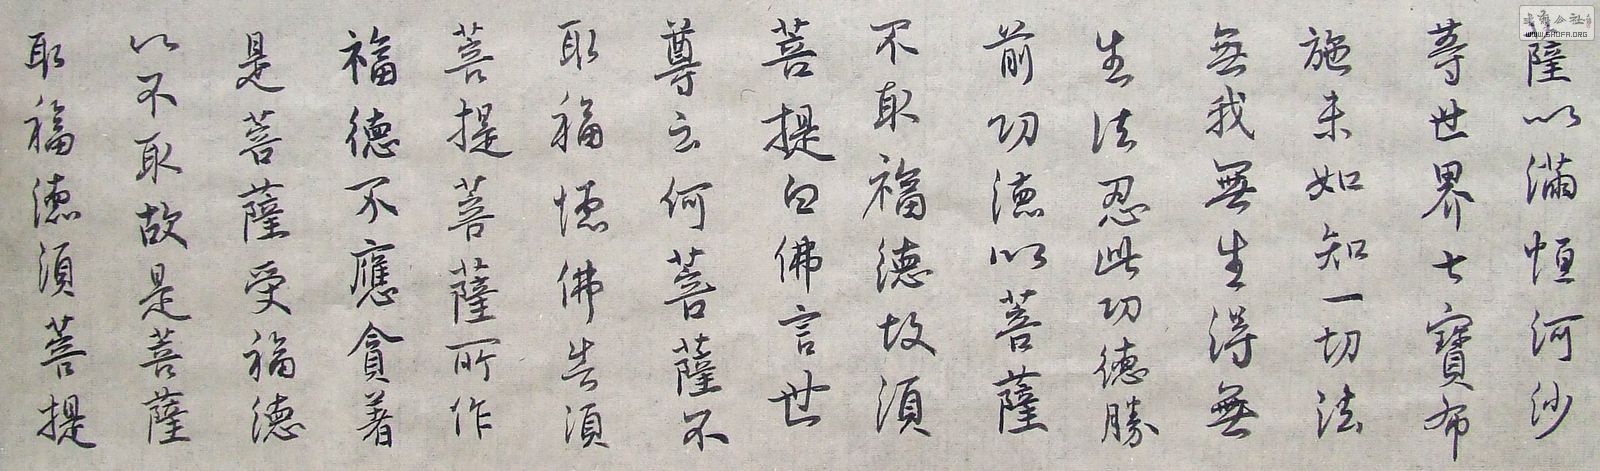 薩以滿恒河沙
等世界七寶布
施未如知一切法
無我無生得無
生法忍此功德勝
前功德以菩薩
不取福德故須
菩提白佛言世
尊云何菩薩不
取福德佛告須
菩提菩薩所作
福德不應貪著
是菩薩受福德
以不取故是菩薩
取福德須菩提
WWW.SHUFA.ORG